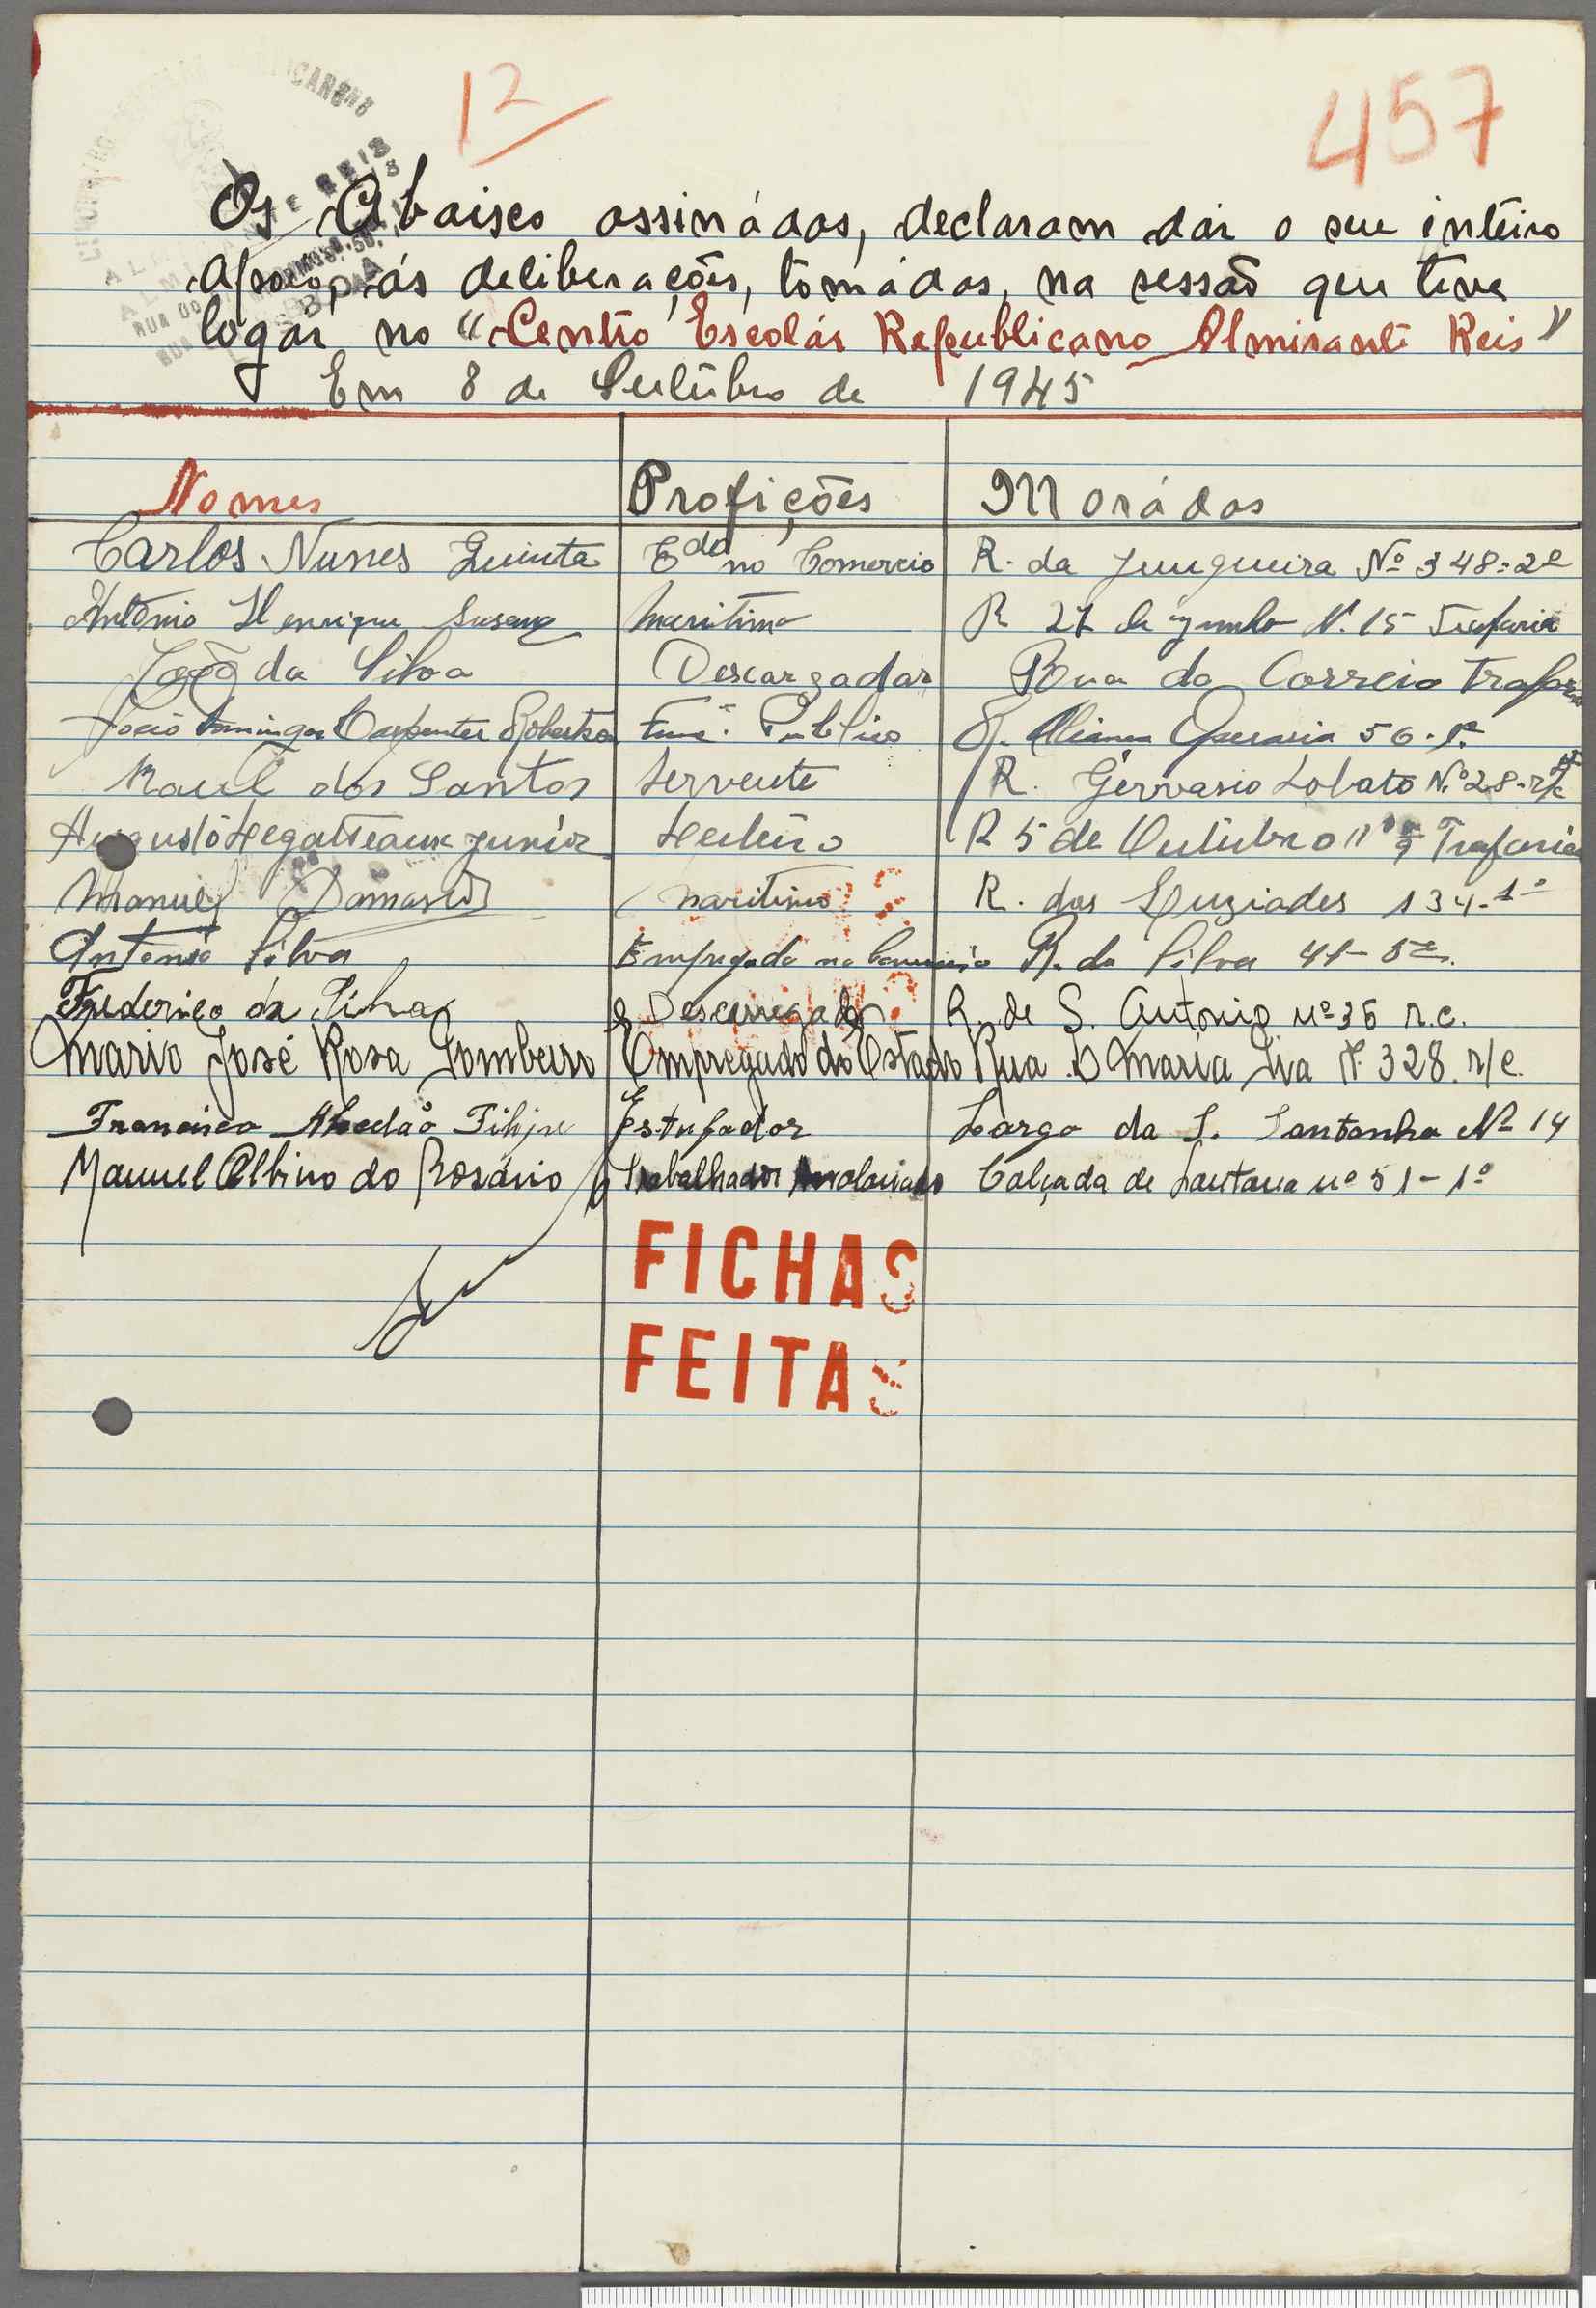 12
457
Os Abaisco assinádos, declaram dár o seu inteiro
Apoio, ás deliberações, tomádas, na sessão que teve
logár no "Centro Escolár Republicano Almirante Reis"
Em 8 de Outubro de 1945
Nomes Profições Morádas
Carlos Nunes Quinta Edo no Comercio R. da Junqueira Nº 348-2º
António Henrique Maritimo R 27 de Junho N. 15 Trafaria
João da Silva Descargador Rua do Correio Trafaria
João Domingos Carpenter Robertson Func. Publico R. Aliança Operaria 56-1º
Raul dos Santos Servente R. Gervasio Lobato Nº 28-r/c
Augusto Legatteaux Junior R 5 de Outubro nº 9 Trafaria
Manuel Damasio maritimo R. dos Luziades 134-1º
Antonio Silva Empregado no Comercio R. da Silva 41-
Frederico da Silva Descarregador R. de S. Antonio nº 36 r.c.
Mario José Rosa Pombeiro Empregado do Estado Rua D Maria Pia Nº 328 r/c.
Francisco Filipe Estufador Largo da S. Nº 14
Manuel Albino do Rosário Trabalhador Calçada de Santana nº 51-1º
FICHAS
FEITAS